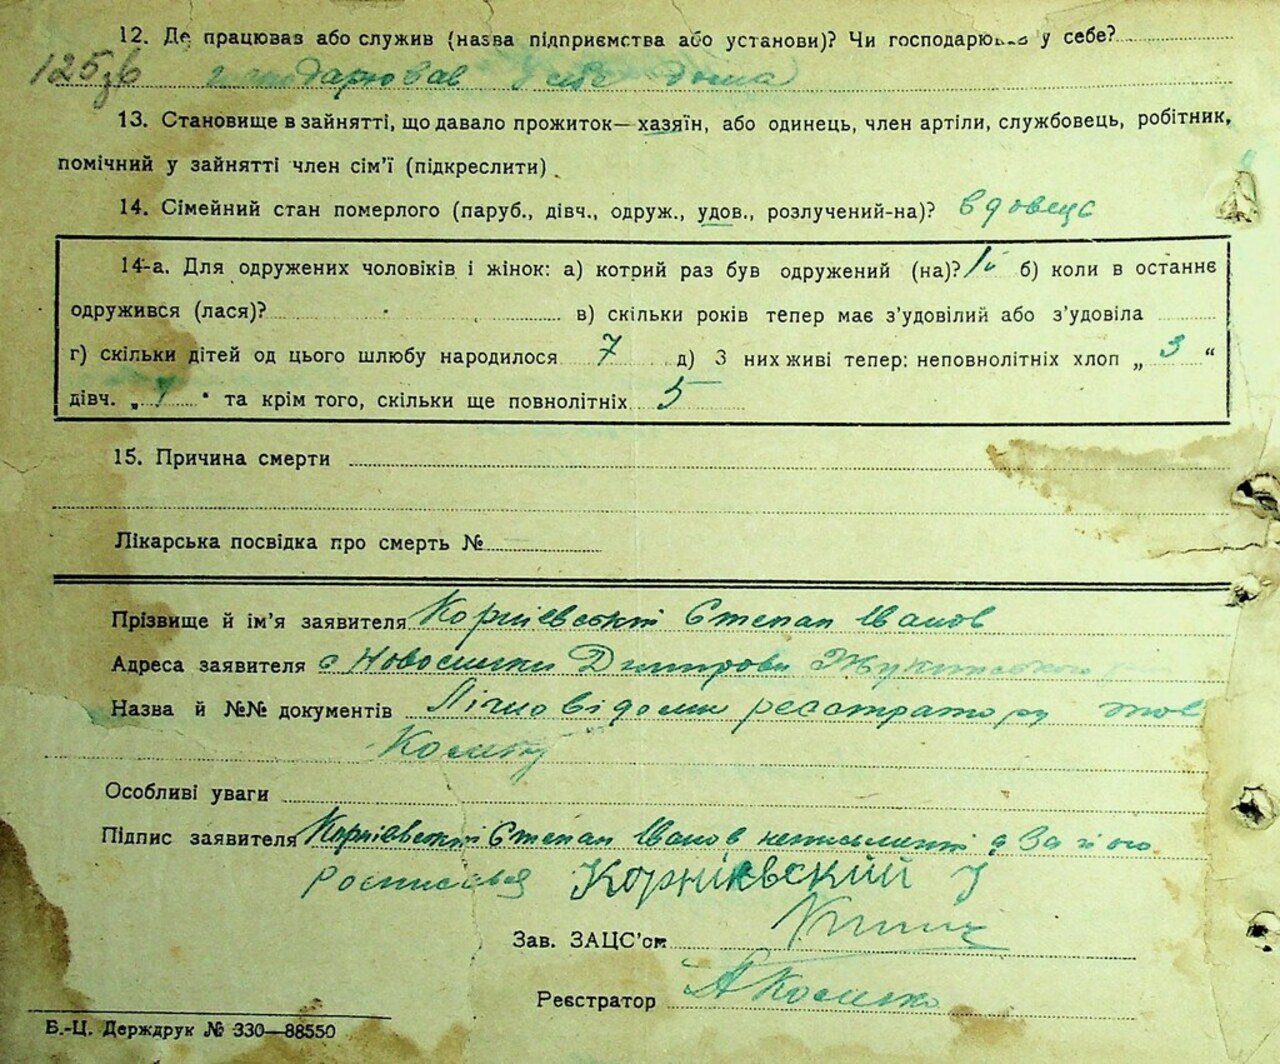 12. Де працював або служив (назва підприємства або установи)? Чи господарював у себе?
125зв господарював у себе дома
13. Становище в зайнятті, що давало прожиток—хазяїн, або одинець, член артіли, службовець, робітник,
помічний у зайнятті член сім’ї (підкреслити)
14. Сімейний стан померлого (паруб., дівч., одруж., удов., розлучений-на)? вдовець
14-а. Для одружених чоловіків і жінок: а) котрий раз був одружений (на)? 1й б) коли в останнє
одружився (лася)? в) скільки років тепер має з’удовілий або з’удовіла
г) скільки дітей од цього шлюбу народилося 7 д) З них живі тепер: неповнолітніх хлоп „ 3 “
дівч. „ “ та крім того, скільки ще повнолітніх 5
15. Причина смерти
Лікарська посвідка про смерть №
Прізвище й ім’я заявителя Корнієвський Степан Іванов
Адреса заявителя с Новоселики Дмитрова
Назва й №№ документів Лічно відомий реєстратору тов
Косенку
Особливі уваги
Підпис заявителя Корнієвский Степан Іванов неписьмений а За його
росписався Корнієвский У
Зав. ЗАЦС’ом
Реєстратор А Косенко
Б.-Ц. Держдрук № 330—88550